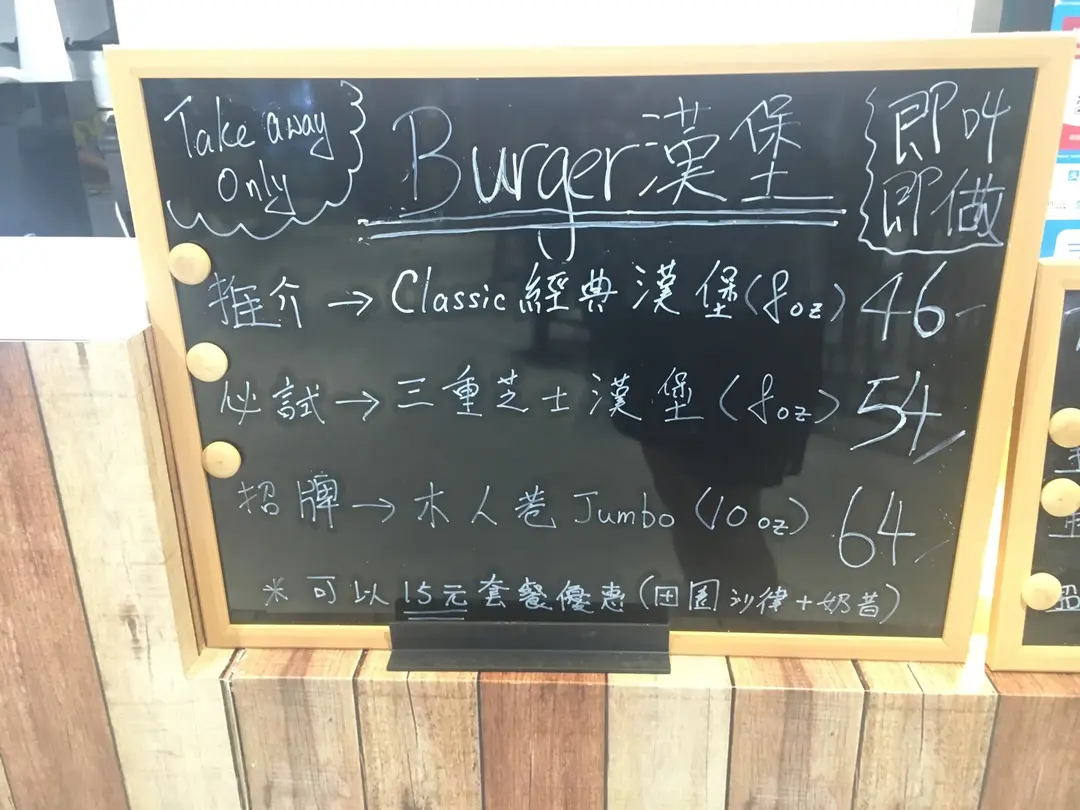 Take away
Only
Burger漢堡
即叫
即做
推介→Classic經典漢堡(8oz) 46
必試→三重芝士漢堡(8oz) 54
招牌→木人巷Jumbo(10oz) 64
*可以15元套餐優惠(田園沙律+奶昔)